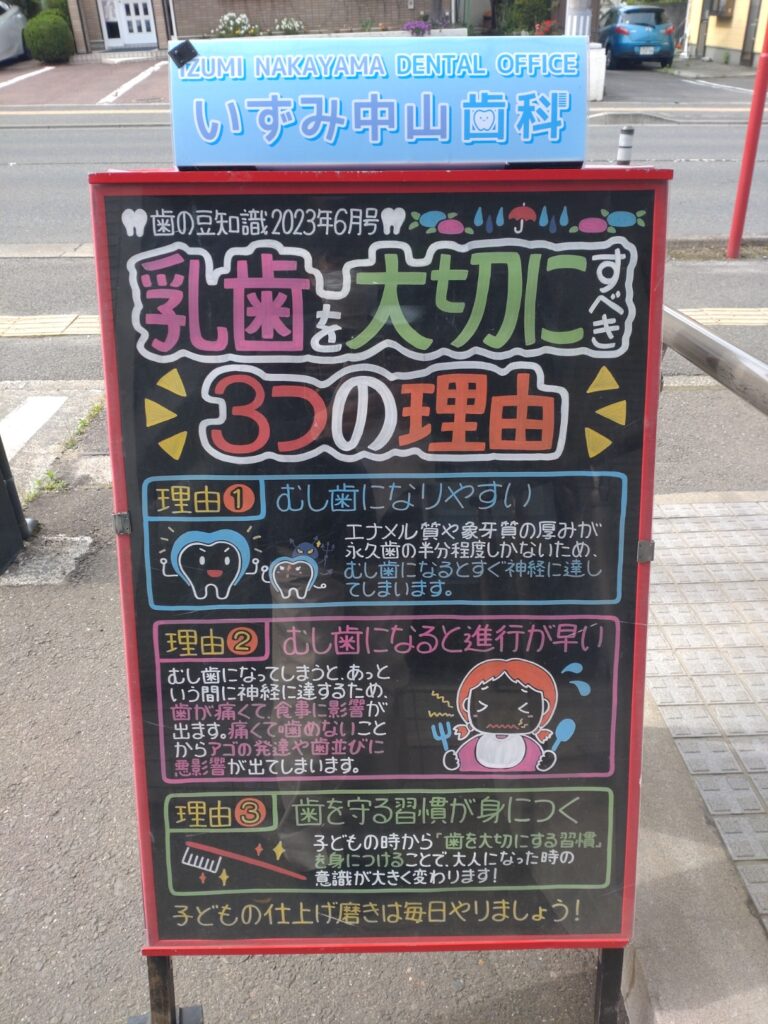 IZUMI NAKAYAMA DENTAL OFFICE
いずみ中山歯科
歯の豆知識 2023年6月号
乳歯を大切にすべき
3つの理由
理由① むし歯になりやすい
エナメル質や象牙質の厚みが
永久歯の半分程度しかないため、
むし歯になるとすぐ神経に達し
てしまいます。
理由② むし歯になると進行が早い
むし歯になってしまうと、あっと
いう間に神経に達するため、
歯が痛くて、食事に影響が
出ます。痛くて噛めないこと
からアゴの発達や歯並びに
悪影響が出てしまいます。
理由③ 歯を守る習慣が身につく
子どもの時から「歯を大切にする習慣」
を身につけることで、大人になった時の
意識が大きく変わります!
子どもの仕上げ磨きは毎日やりましょう!